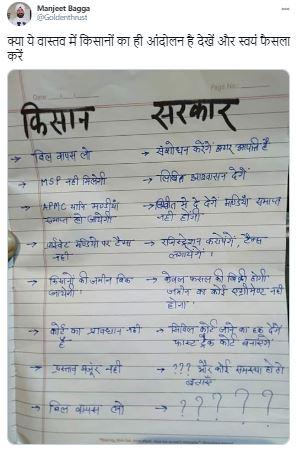 Manjeet Bagga
@Goldenthrust
क्या ये वास्तव में किसानों का ही आंदोलन है देखें और स्वयं फैसला
करें
Date
Page No.
किसान सरकार
→ बिल वापस लो → संशोधन करेंगे अगर आपत्ति है
→ MSP नही मिलेगी → लिखित आश्वासन देंगे
→ APMC यानि मण्डीयाँ समाप्त हो जायेगी → लिखित में दे देंगे मण्डियाँ समाप्त नही होंगी
→ प्राईवेट मण्डियो पर टैक्स नही → रजिस्ट्रेशन करायेंगे, टैक्स लगायेंगे
→ किसानों की जमीन बिक जायेगी → केवल फसल की बिक्री होगी जमीन का कोई एग्रीमेन्ट नही होगा
→ कोर्ट का प्रावधान नही है → सिविल कोर्ट जाने का हक देंगे फास्ट ट्रैक कोर्ट बनायेंगे
→ प्रस्ताव मंजूर नही → ??? और कोई समस्या हो तो बतायें
→ बिल वापस लो → ? ? ? ? ?